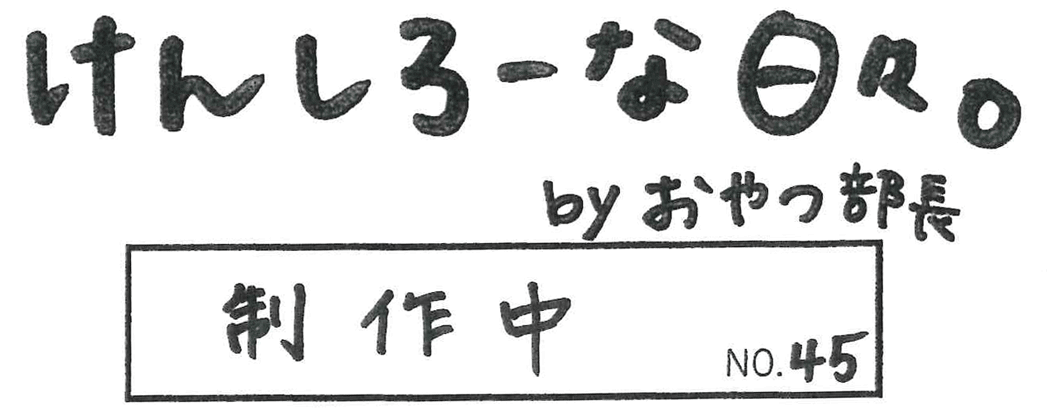 けんしろーな日々。
by おやつ部長
制作中
NO.45